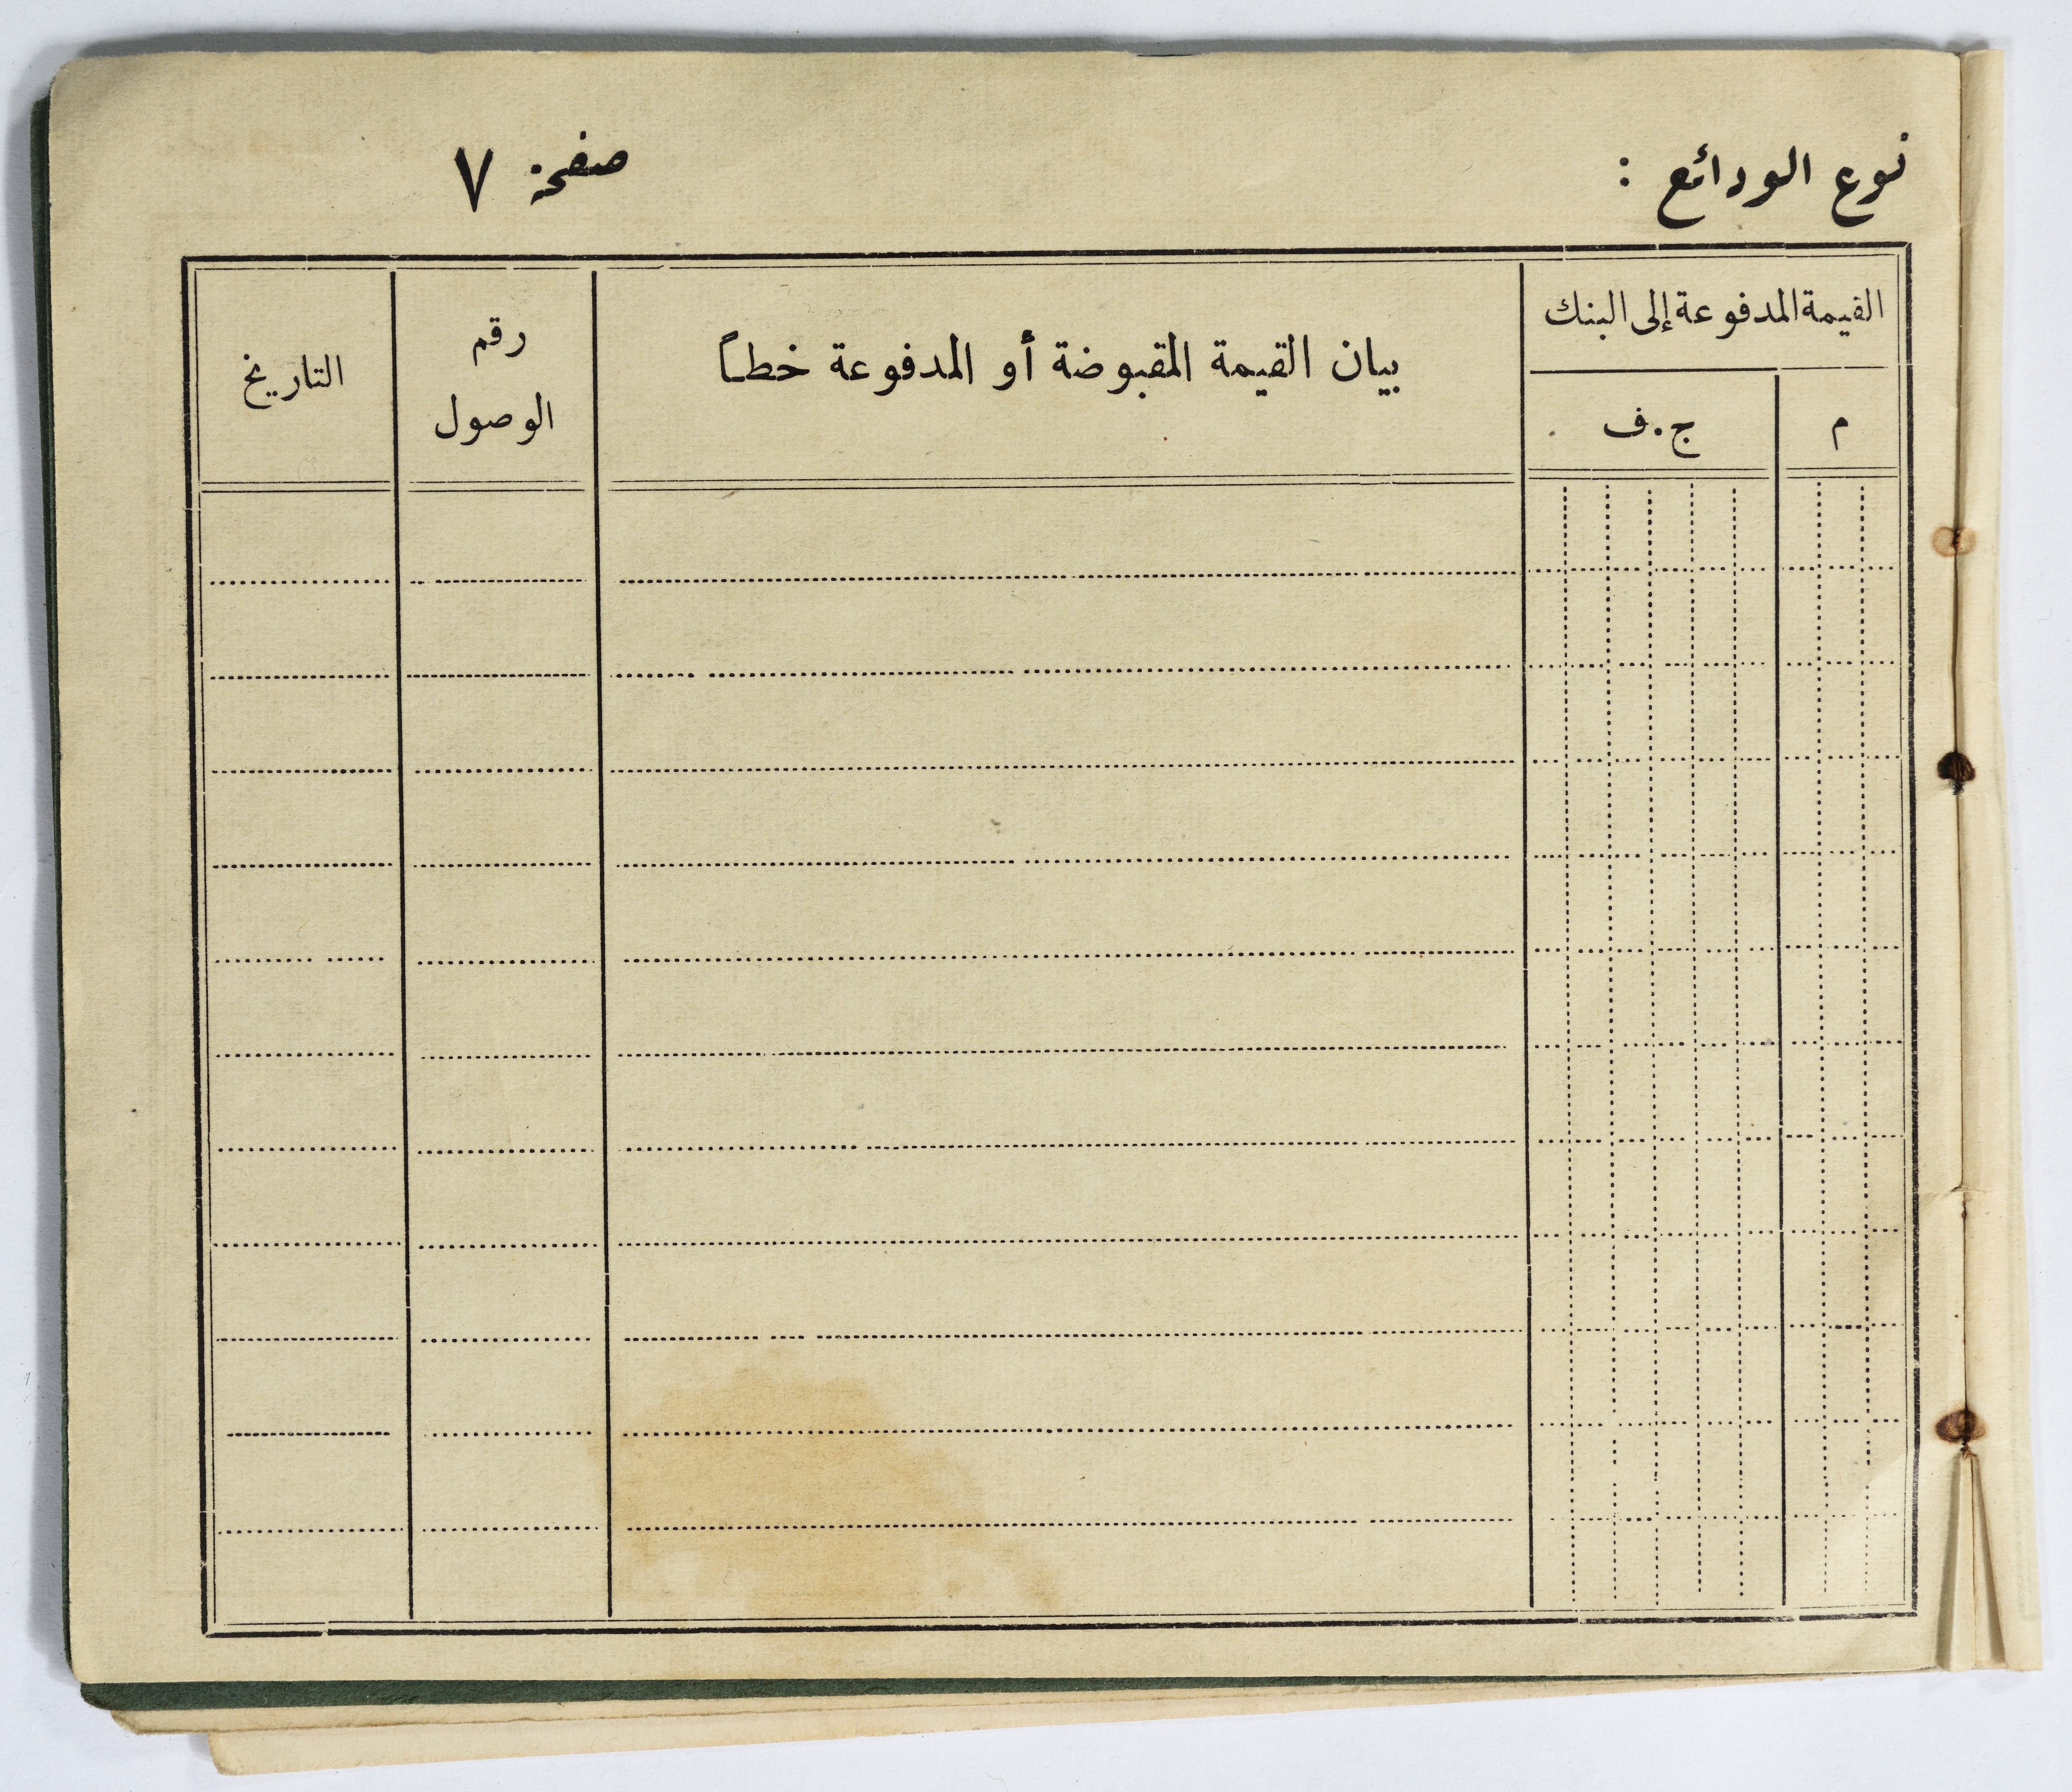 نوع الودائع :
صفحة ٧
القيمة المدفوعة إلى البنك
م
ج.ف
بيان القيمة المقبوضة أو المدفوعة خطاً
رقم
الوصول
التاريخ